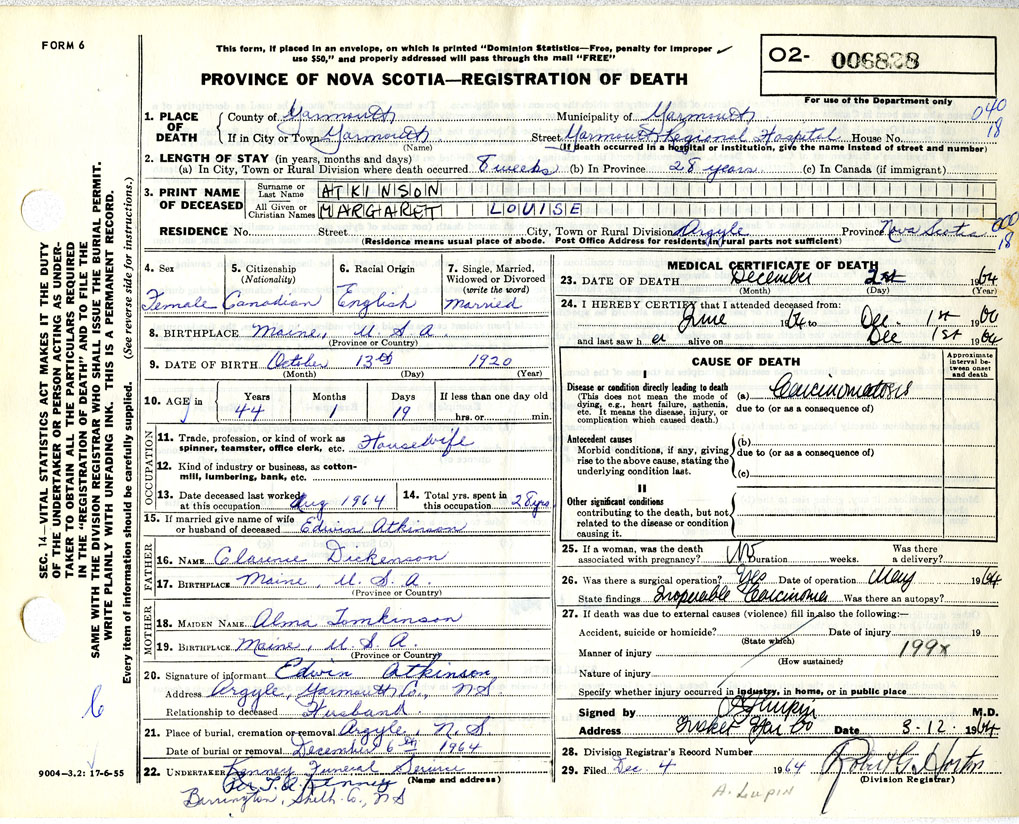 FORM 6
This form, if placed in an envelope, on which is printed "Dominion Statistics—Free, penalty for improper
use $50," and properly addressed will pass through the mail "FREE"
PROVINCE OF NOVA SCOTIA—REGISTRATION OF DEATH
O2- 006828
For use of the Department only
040
18
1. PLACE OF DEATH
County of Yarmouth Municipality of Yarmouth
If in City or Town Yarmouth Street Yarmouth Regional Hospital House No.
(Name) (If death occurred in a hospital or institution, give the name instead of street and number)
2. LENGTH OF STAY (in years, months and days)
(a) In City, Town or Rural Division where death occurred 8 weeks (b) In Province 28 years (c) In Canada (if immigrant)
3. PRINT NAME OF DECEASED
Surname or Last Name ATKINSON
All Given or Christian Names MARGARET LOUISE
RESIDENCE No. Street City, Town or Rural Division Argyle Province Nova Scotia
(Residence means usual place of abode. Post Office Address for residents in rural parts not sufficient)
000
18
4. Sex
Female
5. Citizenship
(Nationality)
Canadian
6. Racial Origin
English
7. Single, Married, Widowed or Divorced
(write the word)
Married
8. BIRTHPLACE Maine, U.S.A
(Province or Country)
9. DATE OF BIRTH October 13th 1920
(Month) (Day) (Year)
10. AGE in
Years Months Days If less than one day old
44 1 19 hrs. or min.
OCCUPATION
11. Trade, profession, or kind of work as
spinner, teamster, office clerk, etc. Housewife
12. Kind of industry or business, as cotton-
mill, lumbering, bank, etc.
13. Date deceased last worked
at this occupation Aug 1964
14. Total yrs. spent in
this occupation 28yrs
15. If married give name of wife
or husband of deceased Edwin Atkinson
FATHER
16. NAME Clarence Dickenson
17. BIRTHPLACE Maine, U.S.A.
(Province or Country)
MOTHER
18. MAIDEN NAME Alma Tomkinson
19. BIRTHPLACE Maine U.S.A
(Province or Country)
20. Signature of informant Edwin Atkinson
Address Argyle, Yarmouth Co., N.S
Relationship to deceased Husband
21. Place of burial, cremation or removal Argyle, N.S.
Date of burial or removal December 6th 1964
22. UNDERTAKER Kenney Funeral Service
(Name and address)
Barrington, Shelb. Co., N S
MEDICAL CERTIFICATE OF DEATH
23. DATE OF DEATH December 2nd 1964
(Month) (Day) (Year)
24. I HEREBY CERTIFY that I attended deceased from:
June 1964 to Dec. 1st 1964
and last saw her alive on Dec 1st 1964
CAUSE OF DEATH
Approximate interval between onset and death
I
Disease or condition directly leading to death
(This does not mean the mode of
dying, e.g., heart failure, asthenia,
etc. It means the disease, injury, or
complication which caused death.)
(a) Carcinomatosis
due to (or as a consequence of)
Antecedent causes
Morbid conditions, if any, giving
rise to the above cause, stating the
underlying condition last.
(b)
due to (or as a consequence of)
(c)
II
Other significant conditions
contributing to the death, but not
related to the disease or condition
causing it.
25. If a woman, was the death
associated with pregnancy? No Duration weeks. Was there
a delivery?
26. Was there a surgical operation? Yes Date of operation May 1964
State findings Inoperable Carcinoma Was there an autopsy?
27. If death was due to external causes (violence) fill in also the following:—
Accident, suicide or homicide? Date of injury 19
(State which)
Manner of injury 199x
(How sustained)
Nature of injury
Specify whether injury occurred in industry, in home, or in public place
Signed by M.D.
Address Date 3-12 1964
28. Division Registrar's Record Number
29. Filed Dec. 4 1964
(Division Registrar)
A. Lupin
SEC. 14—VITAL STATISTICS ACT MAKES IT THE DUTY
OF THE UNDERTAKER OR PERSON ACTING AS UNDER-
TAKER TO OBTAIN ALL THE PARTICULARS REQUIRED
IN THE "REGISTRATION OF DEATH" AND TO FILE THE
SAME WITH THE DIVISION REGISTRAR WHO SHALL ISSUE THE BURIAL PERMIT.
WRITE PLAINLY WITH UNFADING INK. THIS IS A PERMANENT RECORD.
Every item of information should be carefully supplied. (See reverse side for instructions.)
9004-3.2: 17-6-55